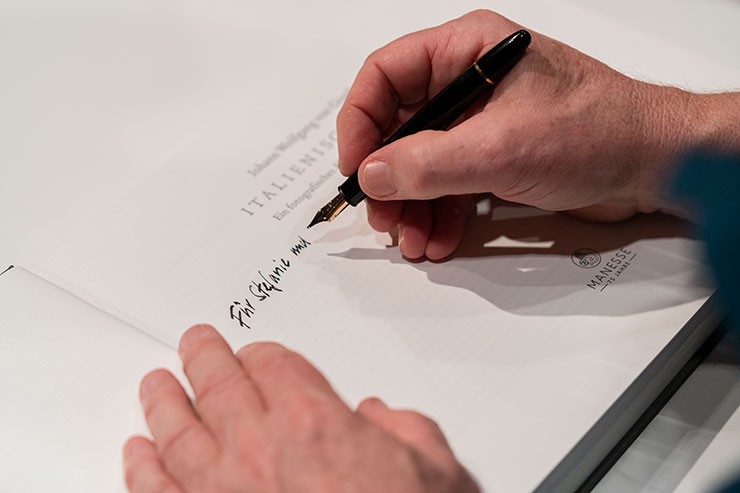 Johann Wolfgang von
ITALIENISC
Ein fotografisches
Für Stefanie und
MANESSE
75 JAHRE